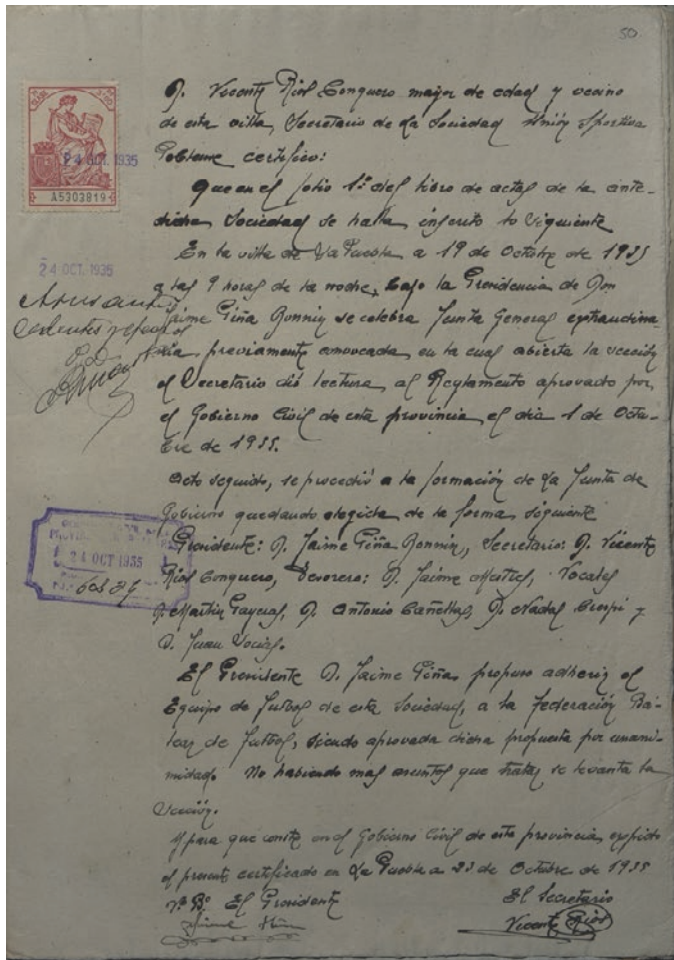 50
D. Vicente Ríos Conquero mayor de edad y vecino
de esta villa, Secretario de La Sociedad Unión Sportiva
Poblense certifico:
Que en el folio 1º del libro de actas de la ante-
dicha Sociedad se halla inscrito lo siguiente
En la villa de La Puebla a 19 de Octubre de 1935
a las 9 horas de la noche, bajo la Presidencia de Don
Jaime Piña Bonnin se celebra Junta General extraordina-
ria, previamente convocada, en la cual abierta la sección
el Secretario dió lectura, al Reglamento aprovado por
el Gobierno Civil de esta provincia, el día 1 de Octu-
bre de 1935.
Acto seguido, se procedió a la formación de La Junta de
Gobierno quedando elegida de la forma siguiente
Presidente: D. Jaime Piña Bonnin, Secretario: D. Vicente
Ríos Conquero, Tesorero: D. Jaime Mestres, Vocales
D. Martín Payeras, D. Antonio Cañellas, D. Nadal Crespí y
D. Juan
El Presidente D. Jaime Piña, propuso adherir el
Equipo de Futbol de esta Sociedad, a la federación Ba-
lear de Futbol, siendo aprovada dicha propuesta por unani-
midad. No habiendo mas asuntos que tratar se levanta la
sección.
Y para que conste en el Gobierno Civil de esta provincia, expido
el presente certificado en La Puebla a 23 de Octubre de 1935
Vº Bº El Presidente
El Secretario
Jaime Piña
Vicente Ríos
24 OCT. 1935
A5303819
24 OCT. 1935
24 OCT 1935